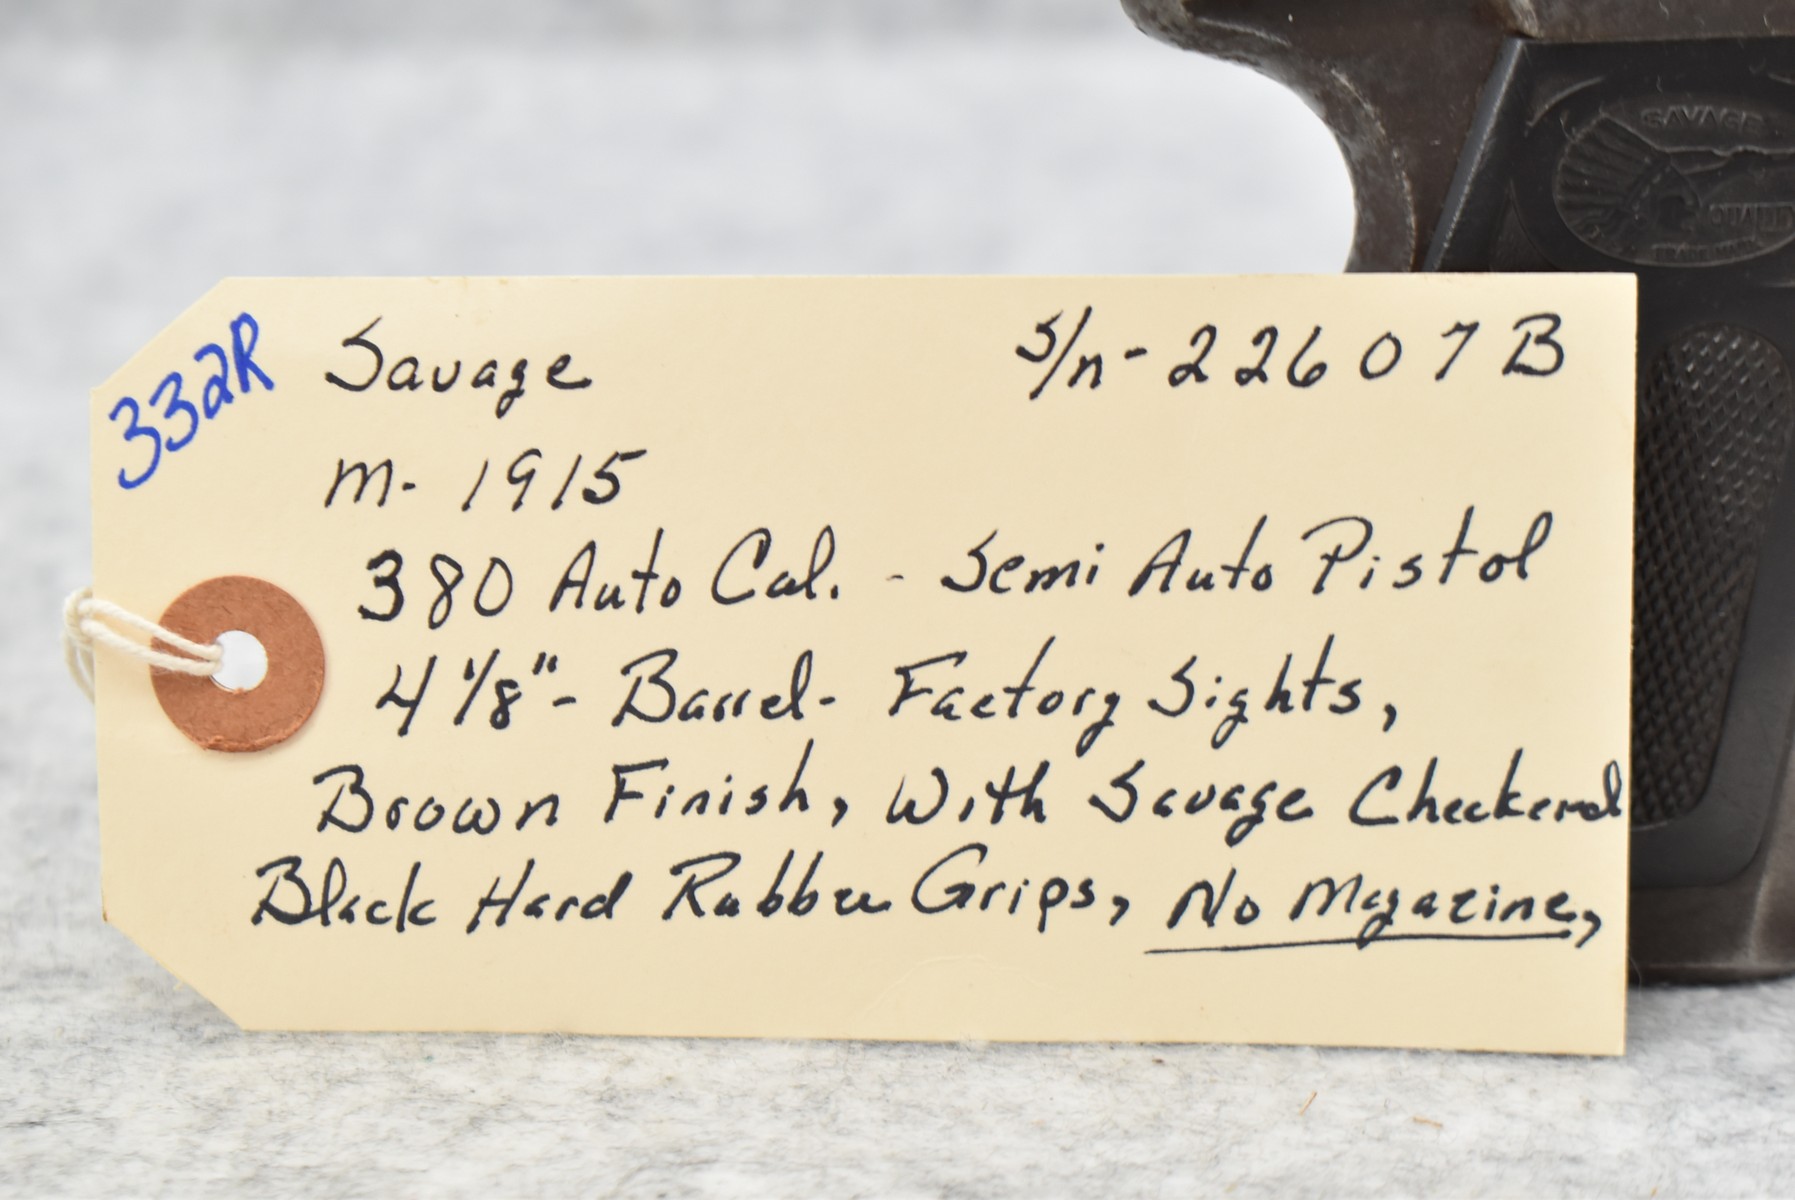 332R
Savage S/n-22607B
M-1915
380 Auto Cal. - Semi Auto Pistol
4 1/8"- Barrel- Factory Sights,
Brown Finish, With Savage Checkered
Black Hard Rubber Grips, No Magazine,
SAVAGE
QUALITY
TRADE MARK